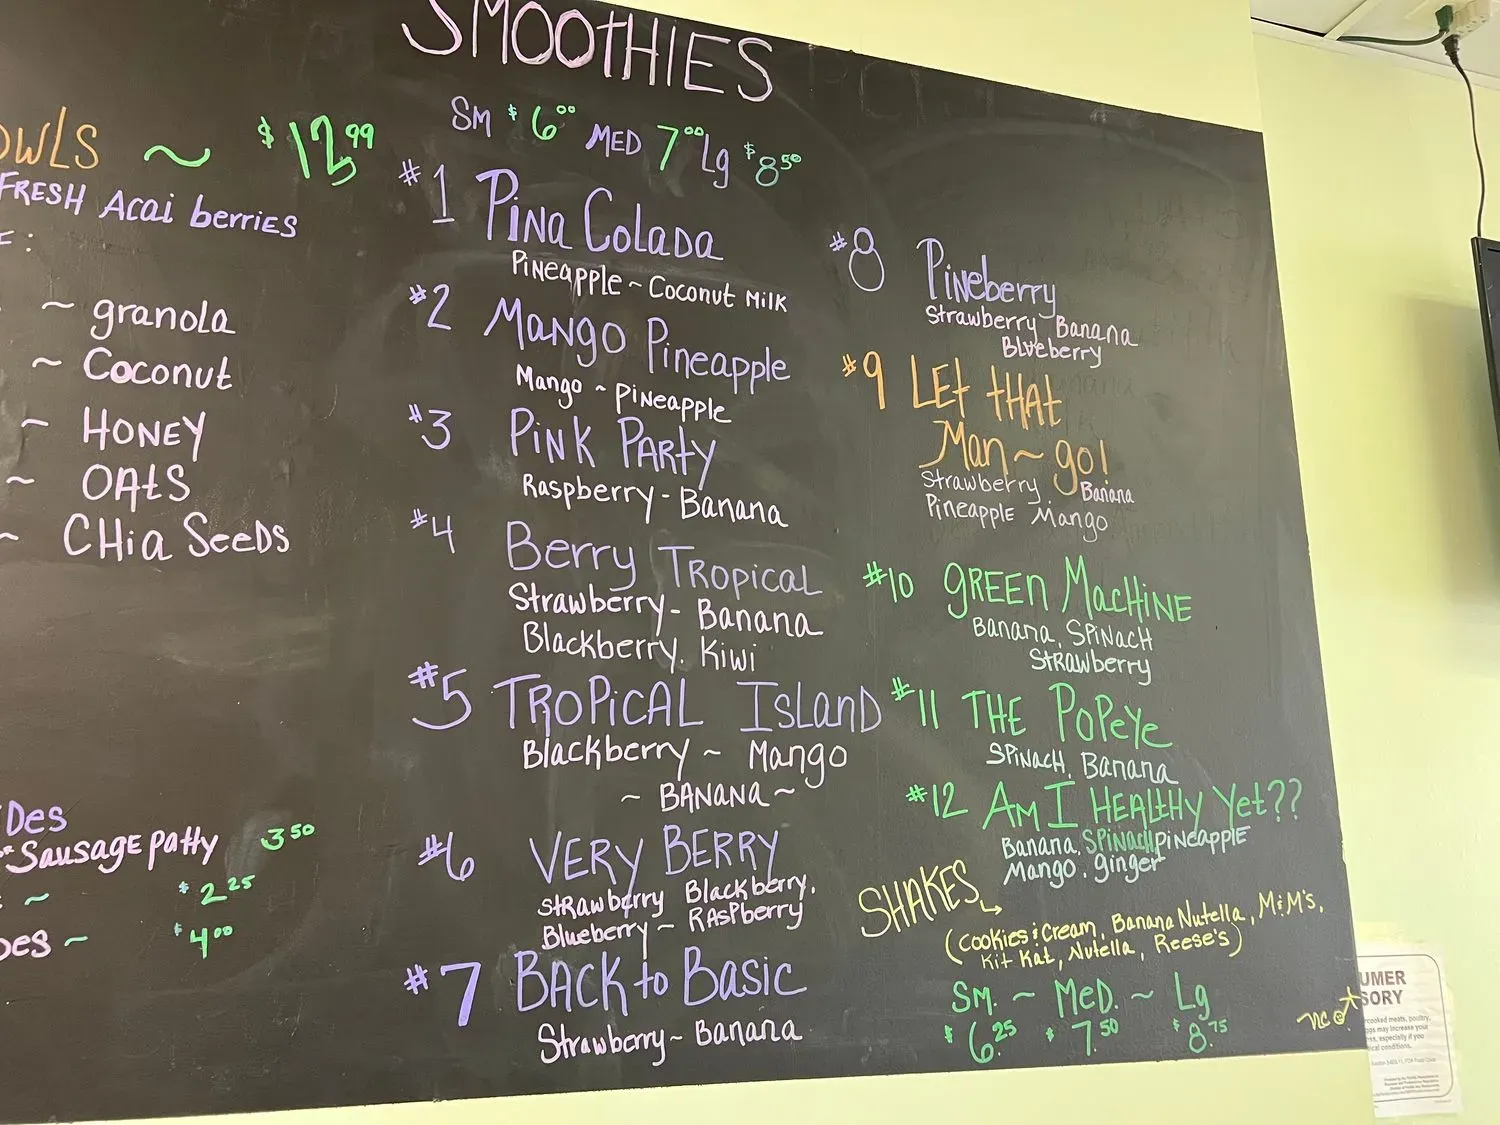 SMOOTHIES
SM $6.00 MED 7.00 Lg $8.50
#1 PINA COLADA
PINEAPPLE ~ COCONUT MILK
#2 MANGO PINEAPPLE
MANGO ~ PINEAPPLE
#3 PINK PARTY
RASPBERRY - BANANA
#4 Berry TROPICAL
Strawberry - BANANA
Blackberry. Kiwi
#5 TROPICAL ISLAND
Blackberry ~ Mango
~ BANANA ~
#6 VERY BERRY
STRAWberry Blackberry,
Blueberry ~ RASPberry
#7 BACK to BASIC
Strawberry ~ Banana
#8 Pineberry
Strawberry Banana
Blueberry
#9 LET tHAt
Man ~ go!
Strawberry. Banana
Pineapple Mango
#10 GREEN MACHINE
BANANA, SPINACH
STRAWberry
#11 THE POPEYE
SPINACH, BANANA
#12 AM I HEALTHY Yet??
Banana, SPINACH PINEAPPLE
Mango, ginger
SHAKES
(Cookies & Cream, Banana Nutella, M&M's,
Kit Kat, Nutella, Reese's)
SM. ~ MeD. ~ Lg
$6.25 $7.50 $8.75
OWLS ~ $12.99
FRESH Acai berries
~ granola
~ Coconut
~ HONEY
~ OAtS
~ CHia SeeDS
Des
Sausage patty 3.50
~ $2.25
oes ~ $4.00
UMER
SORY